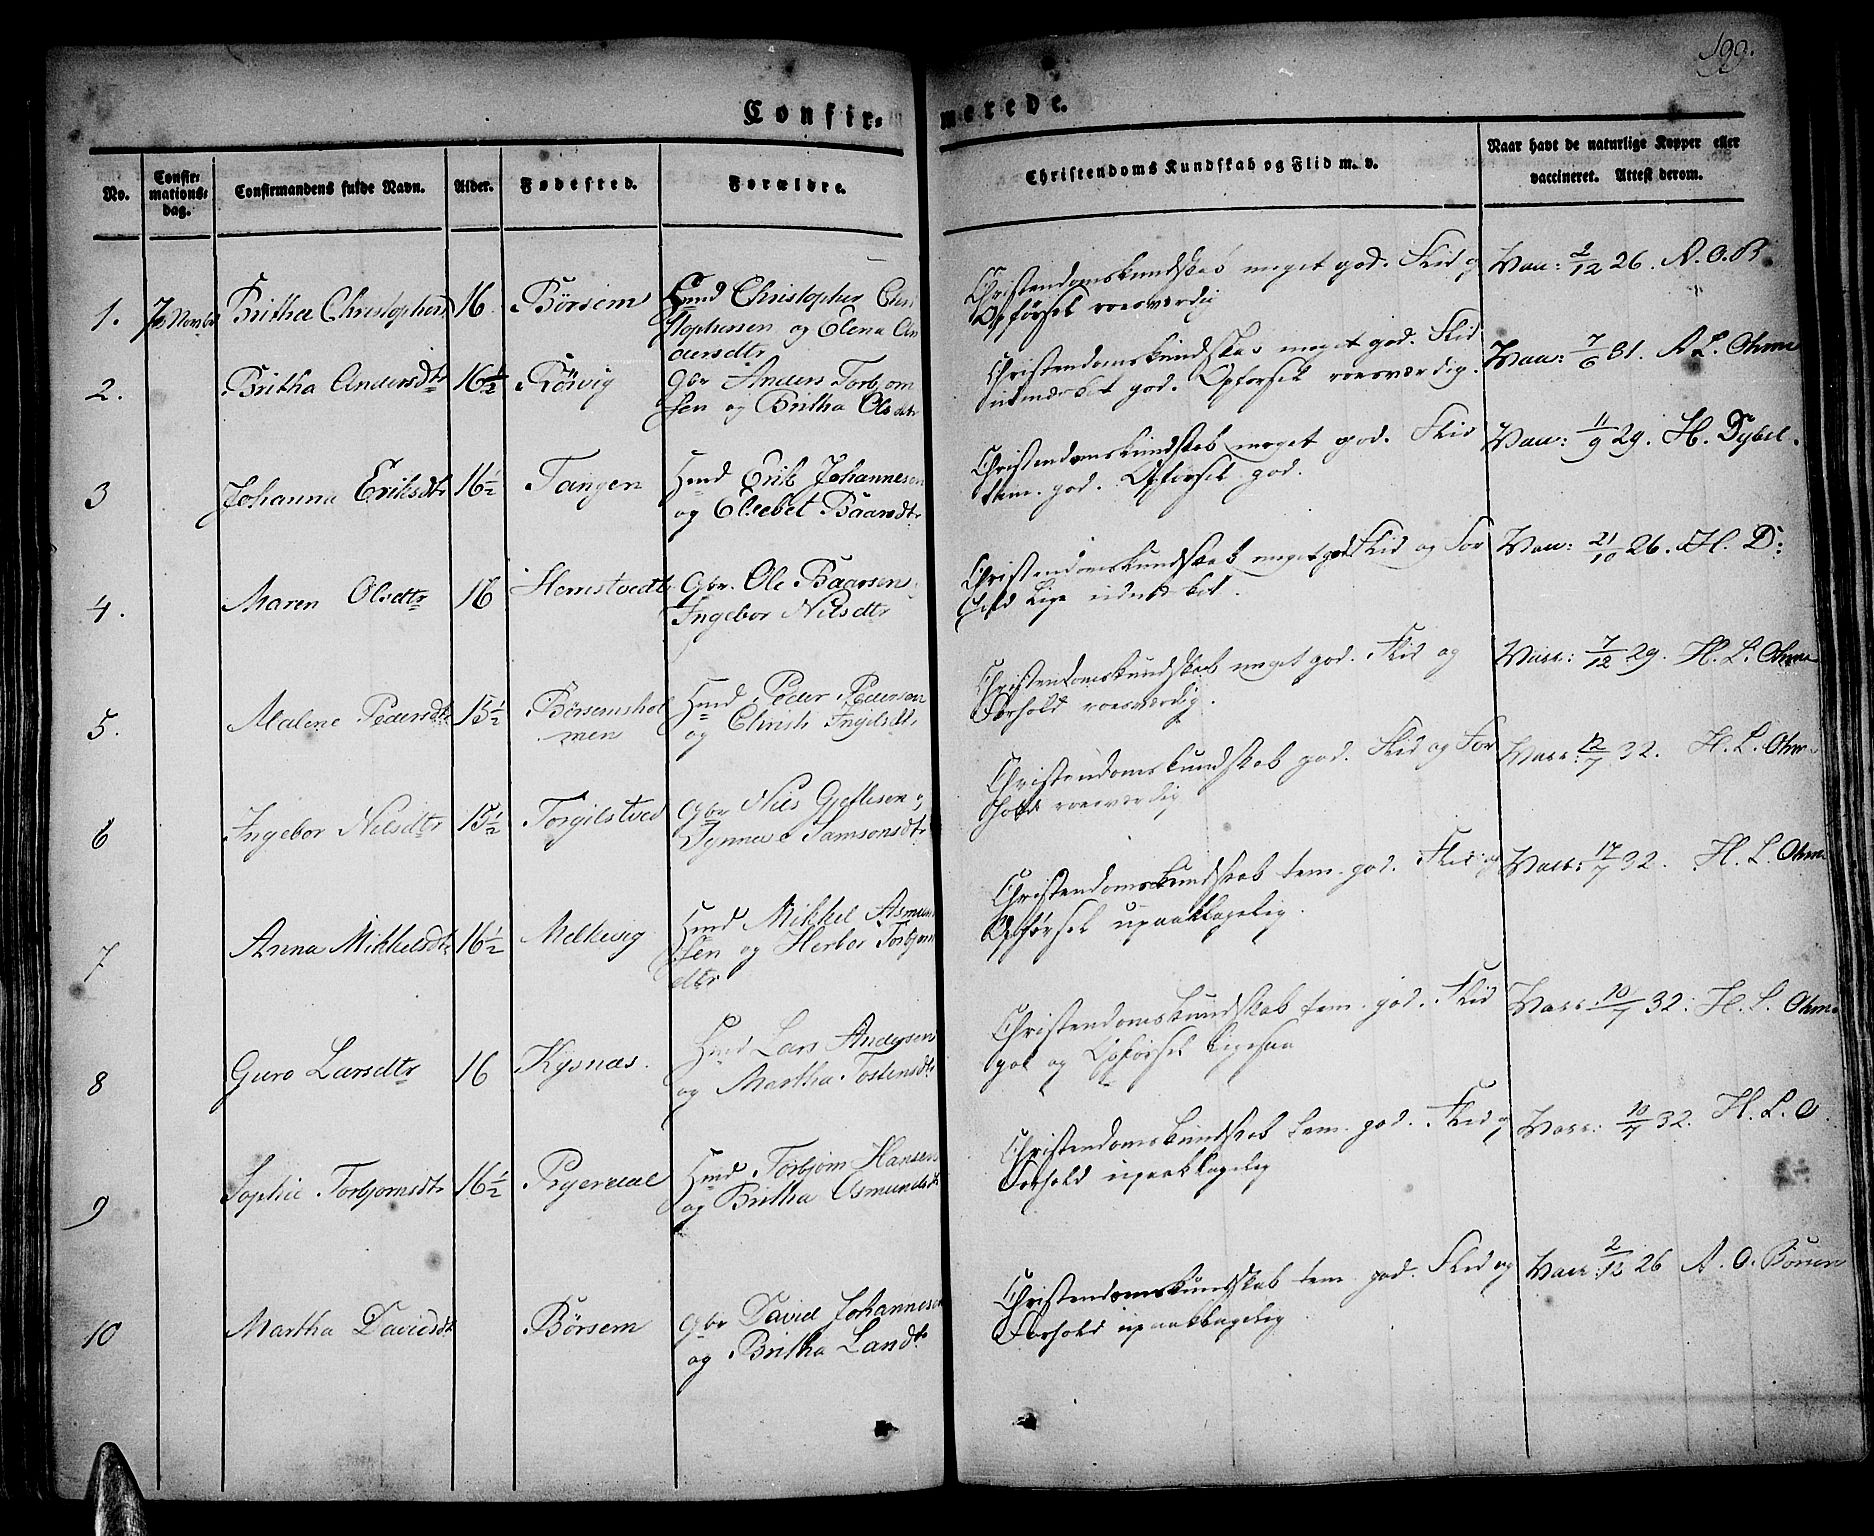 199.
Confir- merede.
No.
Confir-
mations-
dag.
Confirmandens fulde Navn.
Alder.
Fødested.
Forældre.
Christendoms Kundskab og Flid m. v.
Naar havt de naturlige Kopper eller
vaccineret. Attest derom.
1. Britha Christophers 16 Börsem Hmd Christopher Chri
stophersen og Elena An
dersdtr
Christendomskundskab meget god. Flid og
Opførsel roesværdig
Vacc: 2/12 26. A. O. B
2. Britha Andersdtr 16½ Rörvig Gbr Anders Torbjom
sen og Britha Olsdtr
Christendomskundskab meget god. Flid
udmærket god. Opførsel roesværdig.
Vacc: 7/6 31. A L. Ohm
3 Johanna Eriksdtr 16½ Tangen Hmd Erik Johannesen
og Elsebet Baarsdtr
Christendomskundskab meget god. Flid
tem. god. Opførsel god.
Vacc: 11/9 29. H. Dybel.
4. Maren Olsdtr 16 Hemstvedt Gbr. Ole Baarsen
Ingebor Nilsdtr
Christendomskundskab meget god Flid og For
hold lige
Vacc: 21/10 26. H. D:
5. Malene Pedersdtr 15½ Börsemshol
men
Hmd Peder Pedersen
og Christi Ingelsdtr
Christendomskundskab meget god. Flid og
Forhold roesværdig.
Vacc: 7/12 29. H. L. Ohm
6 Ingebor Nilsdtr 15½ Torgilstved Gbr Nils Gjetlesen og
Synneve Samsonsdtr
Christendomskundskab god. Flid og For
hold roesværdig
Vacc: 12/7 32. H. L. Ohm
7 Anna Mikkelsdtr 16½ Melkevig Hmd Mikkel Asmun
sen og Herbor Torbjom
dtr
Christendomskundskab tem. god. Flid og
Opførsel upaaklagelig.
Vacc: 17/7 32. H. L. Ohm
8 Guro Larsdtr 16 Kysnæs. Hmd Lars Andersen
og Martha Tostensdtr
Christendomskundskab tem. god. Flid
god og Opførsel ligesaa
Vacc: 10/7 32. H. L. Ohm
9 Sophie Torbjomsdtr 16½ Ryerdal Hmd Torbjom Hansen
og Britha Osmundsdtr
Christendomskundskab tem. god. Flid og
Forhold upaaklagelig
Vacc: 10/7 32. H. L. O.
10 Martha Davidsdtr Börsem Gbr David Johannesen
og Britha Larsdtr
Christendomskundskab tem god. Flid og
Forhold upaaklagelig
Vacc: 2/12 26 A. O. Börsen